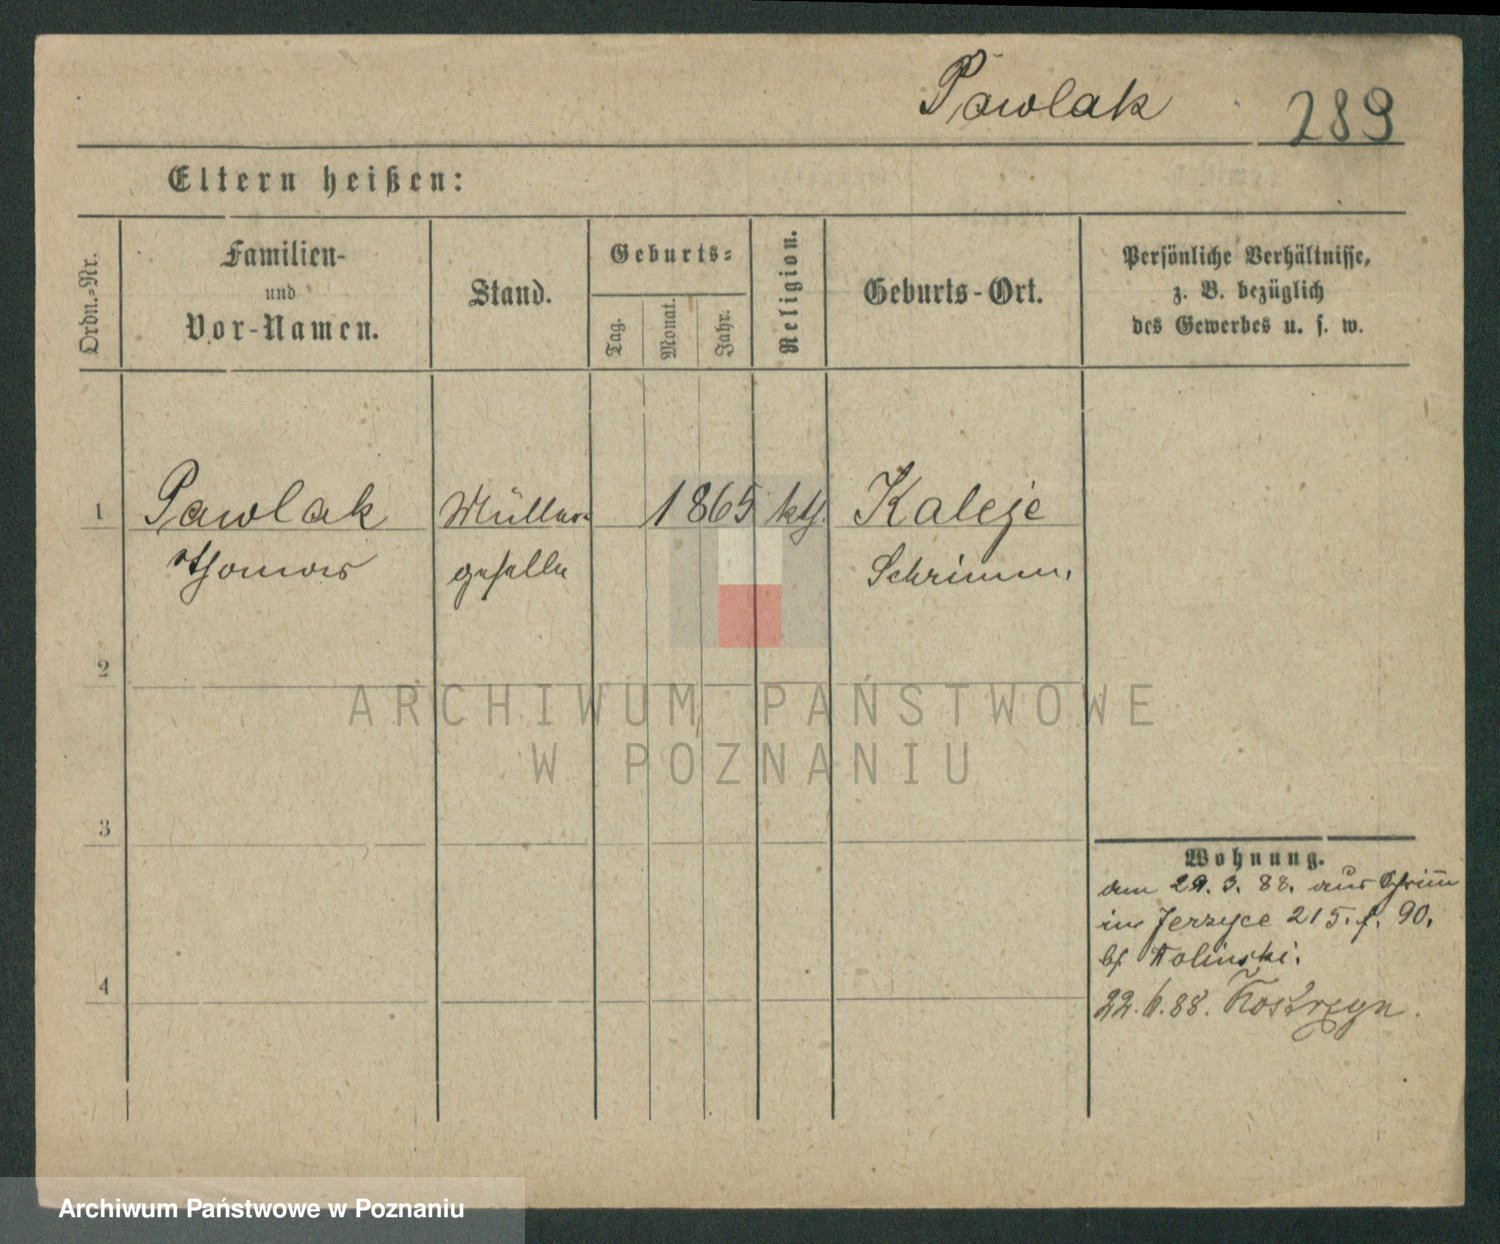 Pawlak 289
Eltern heißen:
Ordn.-Nr.
Familien-
und
Vor-Namen.
Stand.
Geburts-
Tag.
Monat.
Jahr.
Religion.
Geburts-Ort.
Persönliche Verhältnisse,
z. B. bezüglich
des Gewerbes u. s. w.
1 Pawlak Müller- 1865 kth. Kaleje
Thomas geselle Schrimm.
2
3
4
Wohnung.
am 29. 3. 88. aus Schrimm
in Jerzyce 215. f. 90.
bf. Wolinski.
22. 6. 88. Kostrzyn.
ARCHIWUM PAŃSTWOWE
W POZNANIU
Archiwum Państwowe w Poznaniu